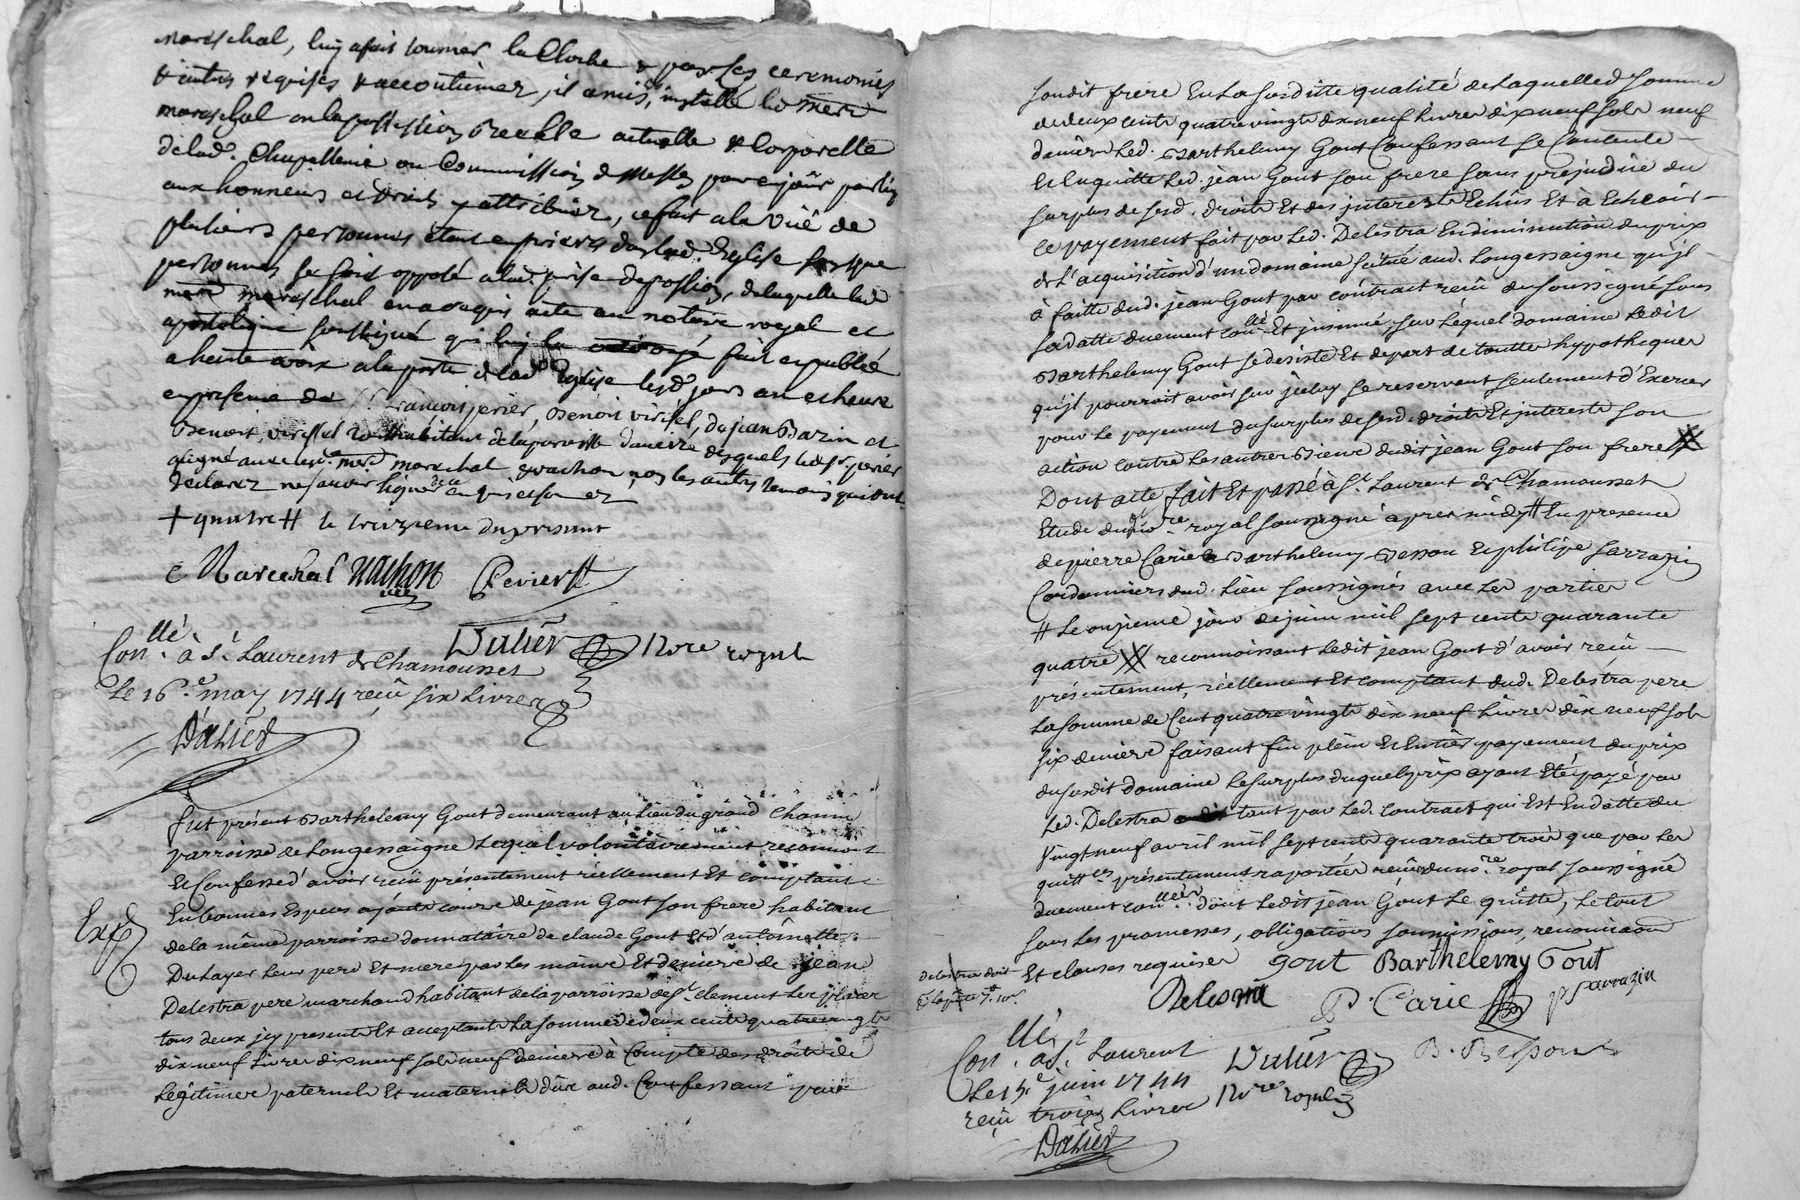 mareschal, luy a fait sonner la Cloche & par les ceremonies
& autres requises & accoutumez, il a mis, installé led mere
mareschal en la possession Reelle actuelle & Corporelle
de lad. Chapellenie ou Commission de Messes pour en joüir
aux honneurs et droits y attribüez, ce fait a la vüe de
plusieurs personnes étant en prieres dans lad. Eglise sans que
personnes se soit opposé a lad. prise de possion, de laquelle led
mere mareschal en a requis acte au notaire royal et
apostolique soussigné qui luy a fait et publié
a haute voix a la porte de lad Eglise lesd. jours an et heure
en presence de Sr. francois perier, Benoit viricel, de jean Bazin et
Benoit viricel habitans de la parroisse desquels led Sr. perier
a signé avec led. mere mareschal & vachon, non les autres temoins qui ont
declarez ne savoir signer de ce enquis et sommez
+ quatre # le treizieme du present
C Mareschal vachon Perier
Dalier Nore royal
Conllé. à St. Laurent de Chamousset
Le 16e. may 1744 reçû six Livres
Dalier
fut présent Barthelemy Gout demeurant au Lieu du grand Chann
parroisse de Longessaigne Lequel volontairement reconnoit
Et Confesse d'avoir reçû présentement réellement Et comptant
En bonnes Especes ayants cours de jean Gout son frere habitant
Exp
de la même parroisse donnataire de claude Gout Et d'antoinette
Dulayer leur pere Et mere par les mains Et deniers de jean
Delestra pere marchand habitant de la parroisse de St. clement Les places
tous deux jcy presents Et acceptants La somme de deux cents quatre vingts
dix neuf Livres dix neuf sols neuf deniers à Compte des droits de
Légitimes paternels Et maternels dûs aud. Confessant par
sondit frere En La susditte qualité de Laquelle d. somme
de deux cents quatre vingts dix neuf Livres dix neuf sols neuf
deniers Led. Barthelemy Gout Confessant se Contente
Et En quitte Led. jean Gout son frere sans prejudice du
surplus de sesd. droits Et des interets Echus Et à Echeoir
ce payement fait par Led. Delestra En diminution du prix
de L'acquisition d'un domaine situé aud. Longessaigne qu'jl
à faitte dud. jean Gout par contrait recû du soussigné sous
sa datte duement conllé Et jnsinué, sur Lequel domaine Ledit
Barthelemy Gout se desiste Et depart de touttes hypotheques
qu'jl pourroit avoir sur jceluy se reservant seulement d'Exercer
pour Le payement du surplus de sesd. droits Et interets son
action contre Les autres Biens dudit jean Gout son frere #
Dont acte fait Et passé à St. Laurent de Chamousset
Etude du nore. royal soussigné après midy # En presence
de pierre Carie Barthelemy Besson Et philipe sarrazin
Cordonniers dud. Lieu soussignés avec Les parties
# Le onzieme jour de juin mil sept cents quarante
quatre # reconnoissant Ledit jean Gout d'avoir reçû
présentement, réellement Et comptant dud. Delestra pere
La somme de Cent quatre vingts dix neuf Livres dix neuf sols
six deniers faisant fin plein Et Entier payement du prix
du susdit domaine Le surplus duquel prix ayant Eté payé par
Led. Delestra tant par Led. contract qui Est En datte du
vingt neuf avril mil sept cents quarante trois que par Les
quittces présentement raportées reçûes du nore. royal soussigné
duement conllées. dont Ledit jean Gout Le quitte, Le tout
sous Les promesses, obligations soumissions, renonciaons
Et clauses requises gout Barthelemy Gout
Delestra doit
Delestra P. Carie p sarrazin
Conllé. à St. Laurent Dalier B. Besson
Le 15e. juin 1744 Nore royal
reçû trois Livres
Dalier